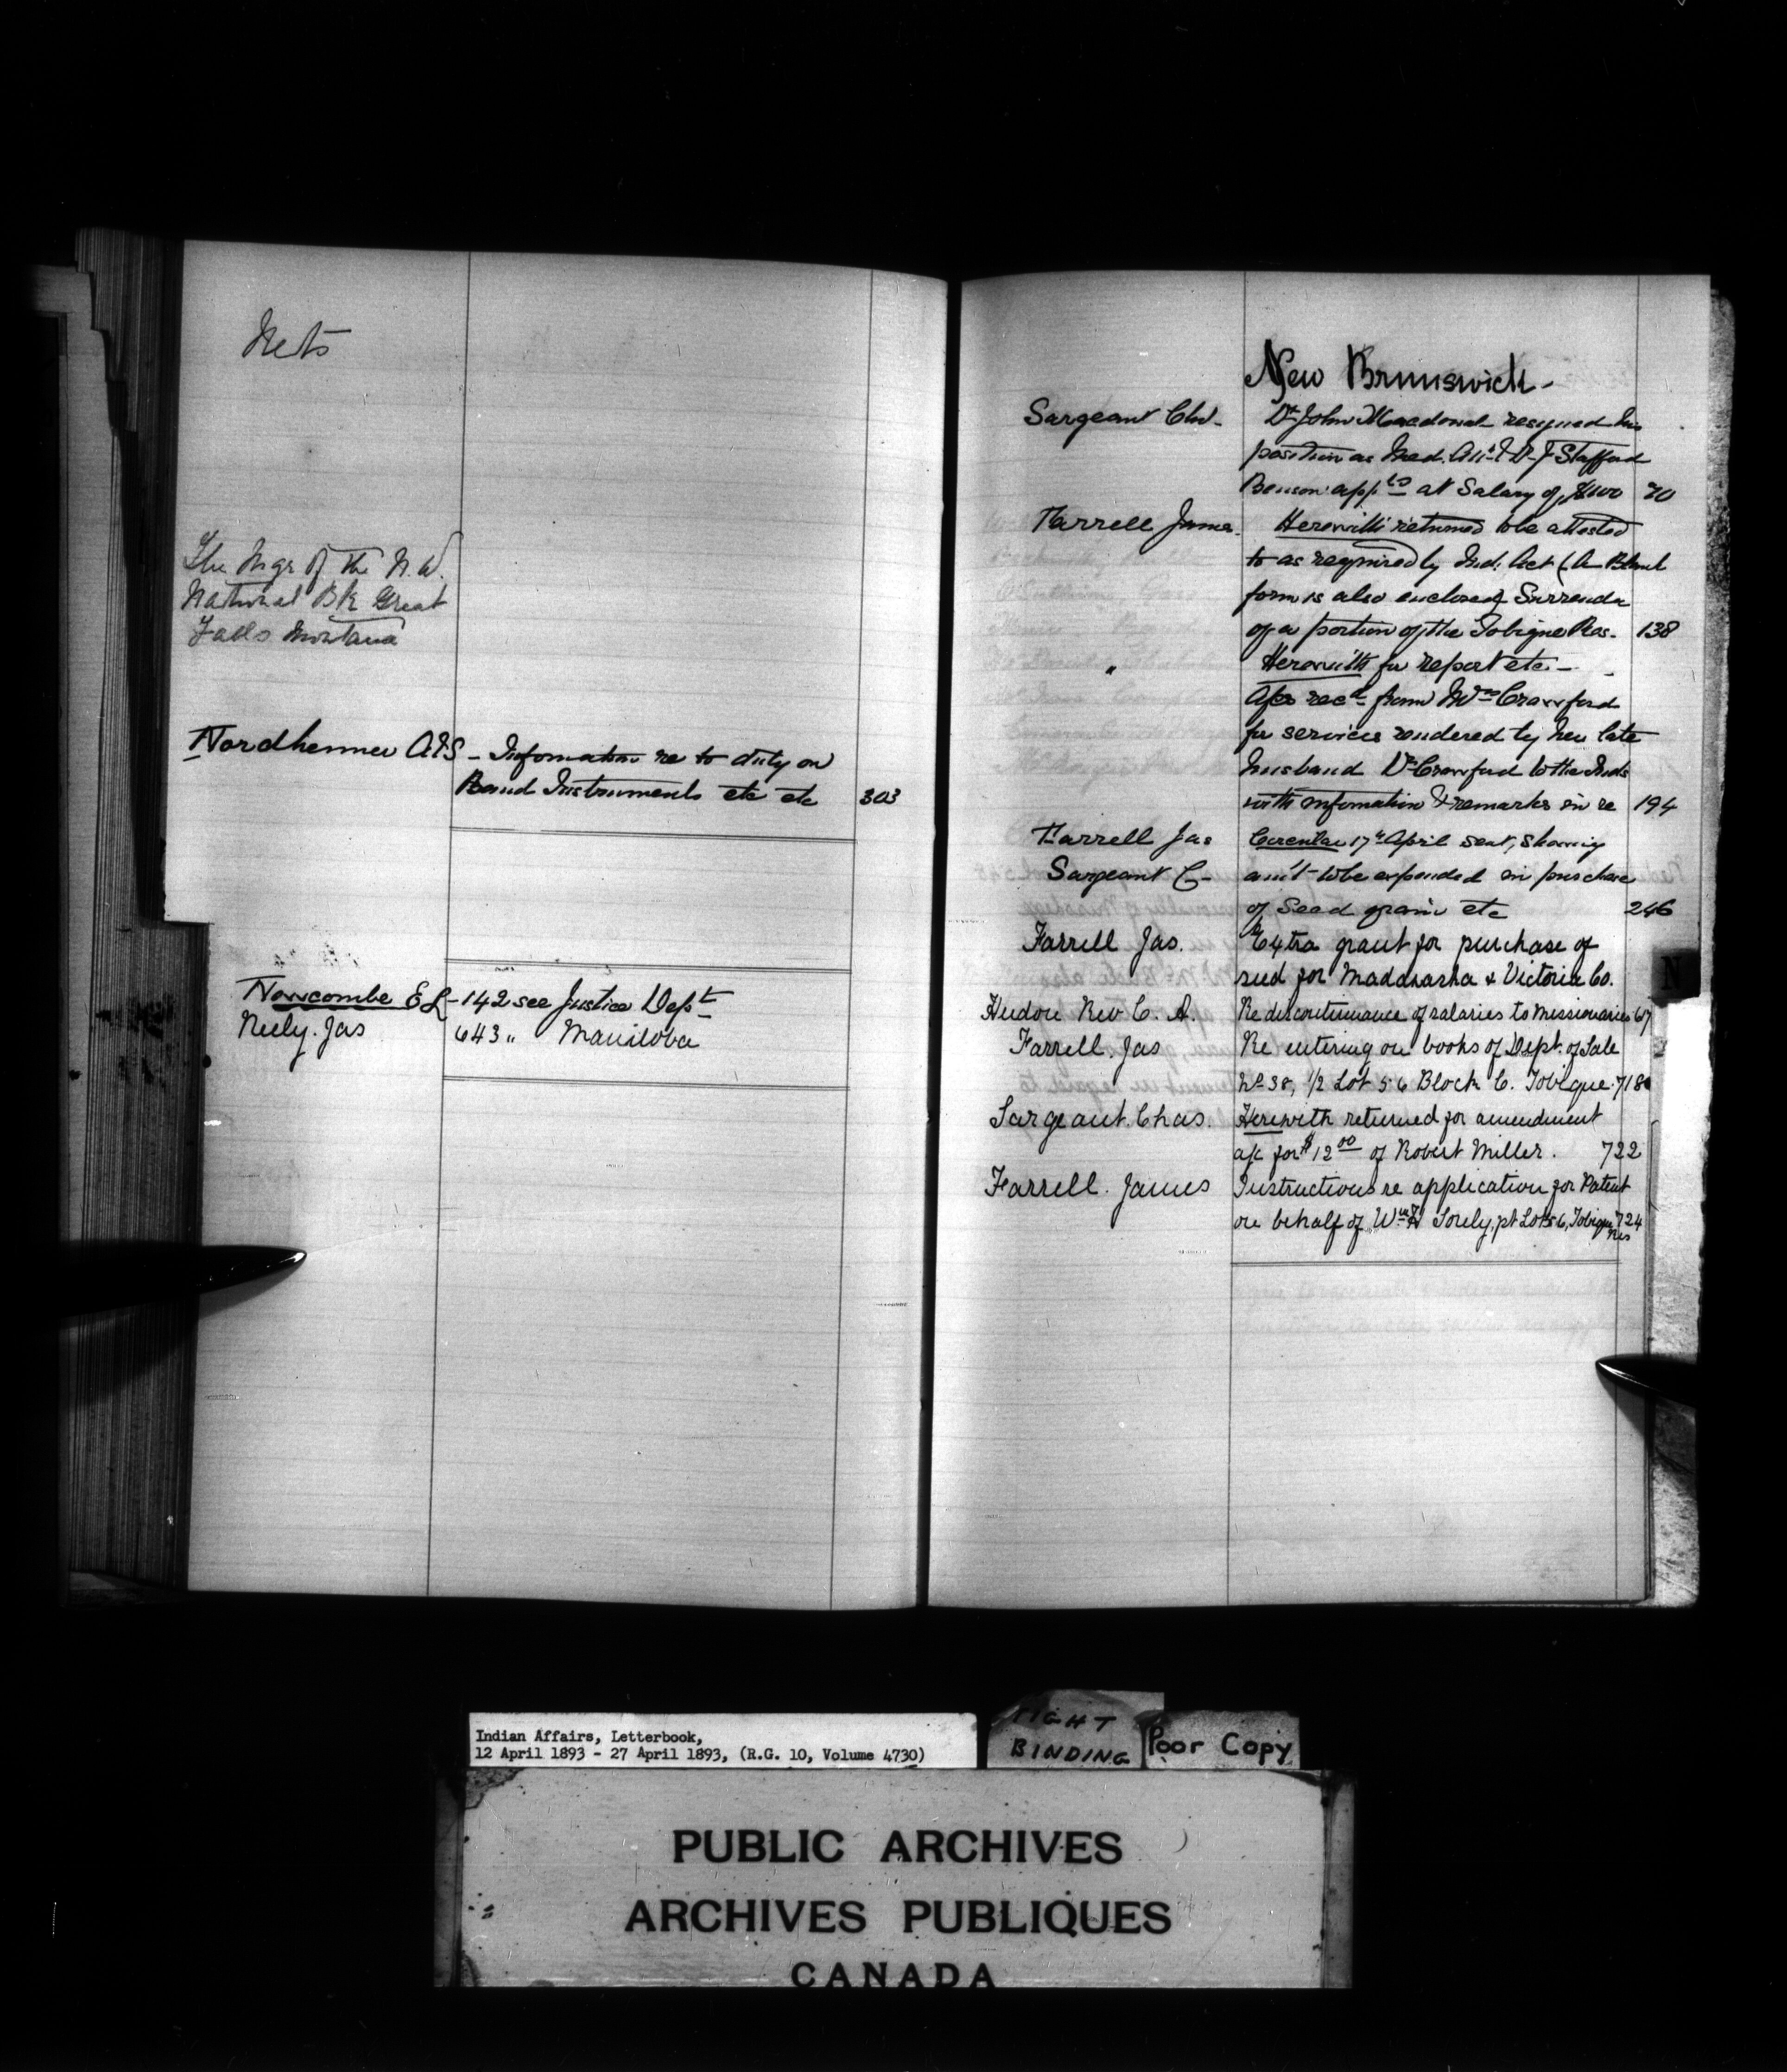 Nets
The Mgr of the N.W.
National Bk Great
Falls Montana
Nordheimer A & S - Information re to duty on
Band Instruments etc etc 303
Newcombe E L - 142 see Justice Dept
Neely. Jas 643 " Manitoba
New Brunswick -
Sargeant Chs. Dr John Macdonald resigned his
position as Med. Att. & Dr J Stafford
Benson app'td at Salary of $100 70
Farrell James. Herewith returned to be attested
to as required by Ind. Act (A Blank
form is also enclosed) Surrender
of a portion of the Tobique Res. 138
" Herewith for report etc. -
A/cs recd from Mrs Crawford
for services rendered by her late
husband Dr Crawford to the Inds
with information & remarks in re 194
Farrell Jas Circular 17th April sent, showing
Sargeant C - am't to be expended in purchase
of Seed grain etc 246
Farrell Jas. Extra grant for purchase of
seed for Madawaska & Victoria Co.
Hudon Rev C. A. Re discontinuance of salaries to Missionaries
Farrell. Jas Re entering on books of Dept. of Sale
No 38, 1/2 Lot 56 Block C. Tobique. 718
Sargeant. Chas. Herewith returned for amendment
a/c for $12 00 of Robert Miller. 722
Farrell. James Instructions re application for Patent
on behalf of Wm H Sorely, pt Lot 56, Tobique Res 724
N
Indian Affairs, Letterbook,
12 April 1893 - 27 April 1893, (R.G. 10, Volume 4730)
TIGHT
BINDING
Poor Copy
PUBLIC ARCHIVES
ARCHIVES PUBLIQUES
CANADA